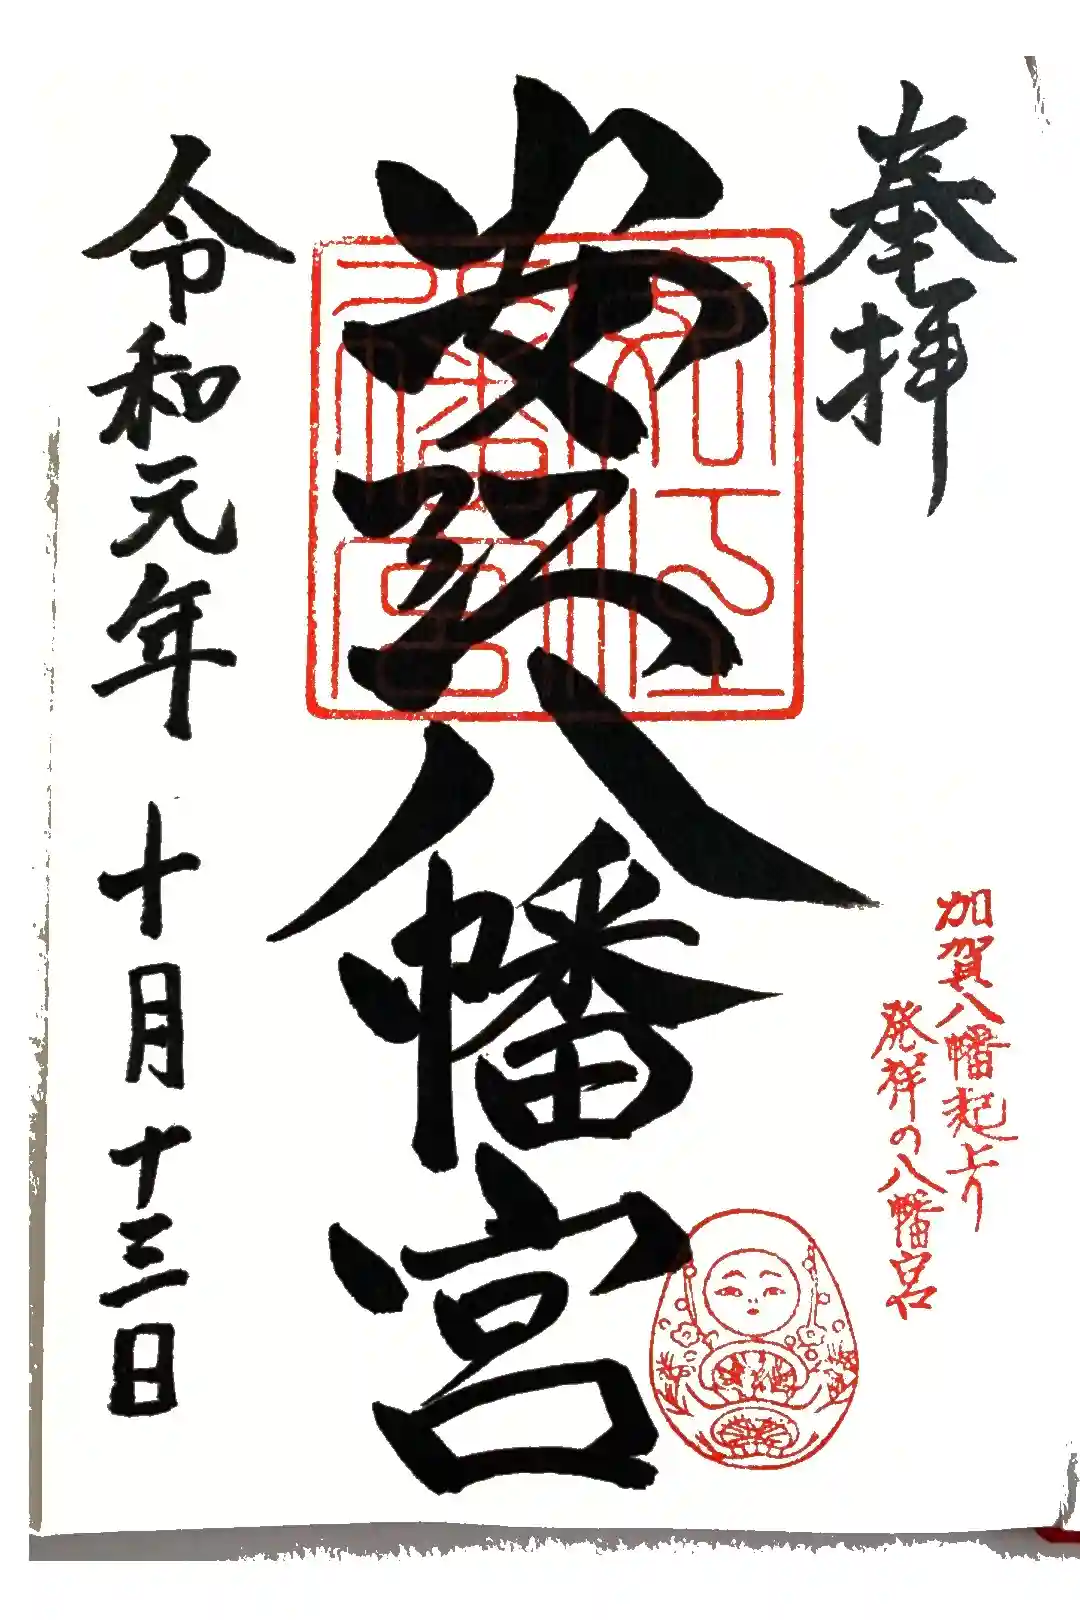 奉拝
加賀八幡起上り
発祥の八幡宮
安江八幡宮
令和元年 十月十三日